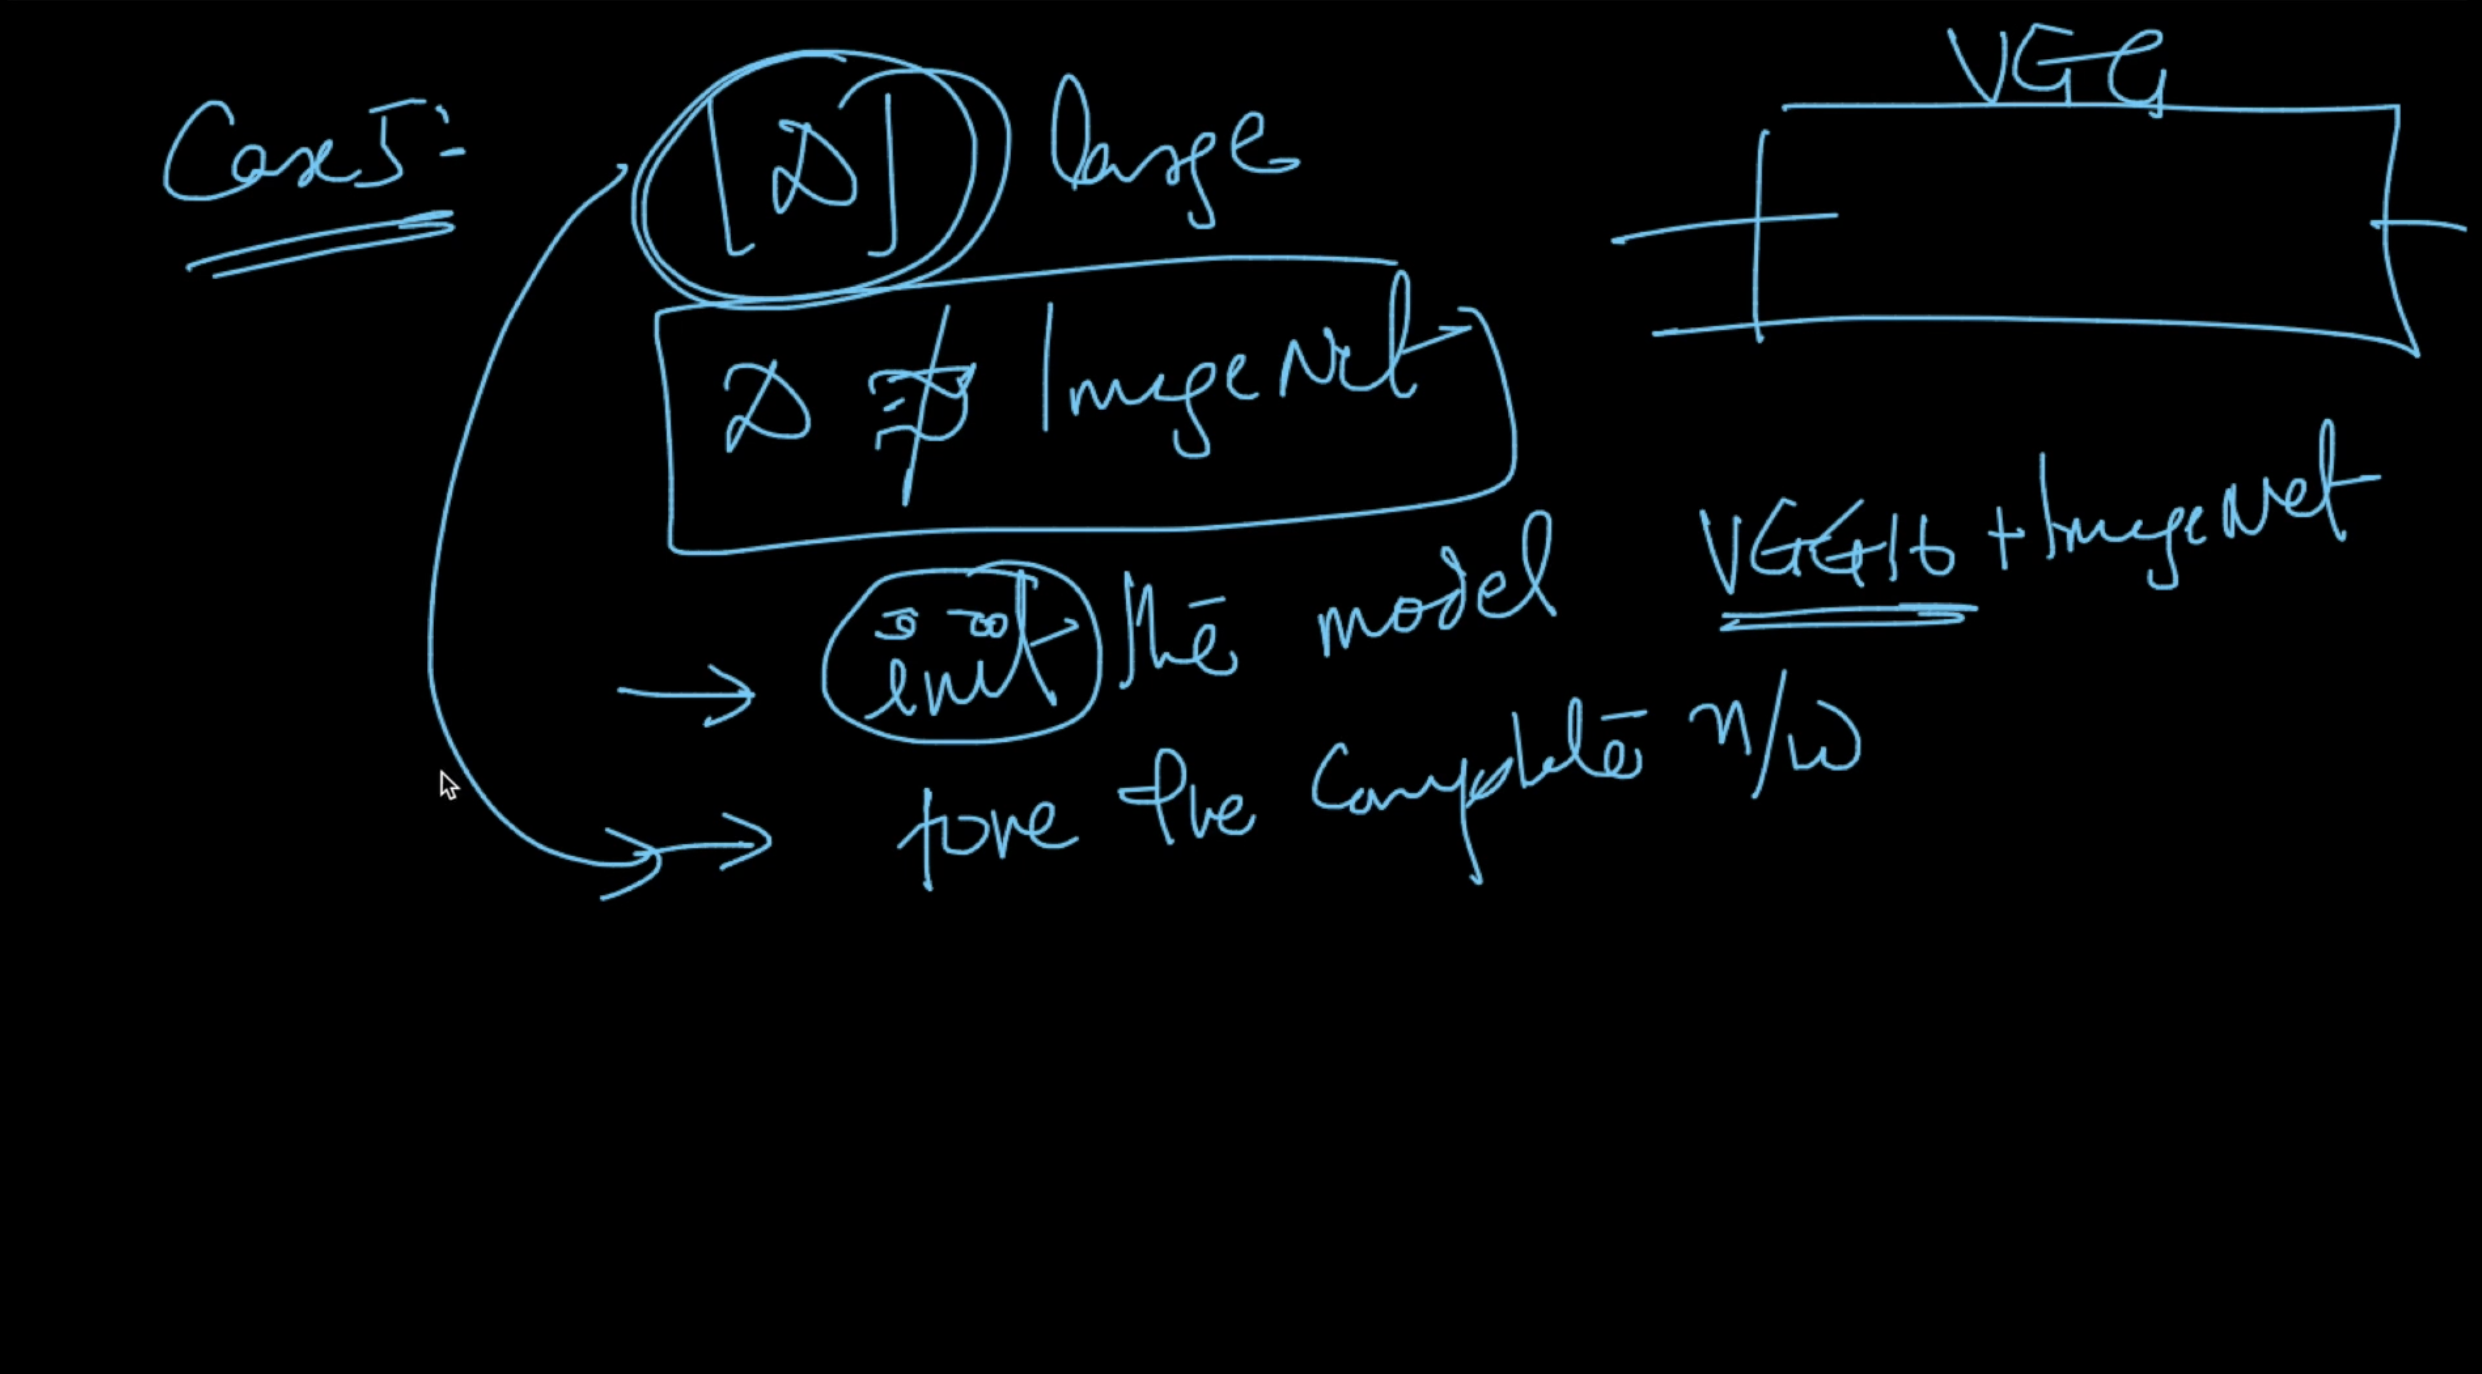 Case 5:-
[D] large
VGG
D ≠ ImageNet
init the model
VGG16 + ImageNet
tune the complete n/w